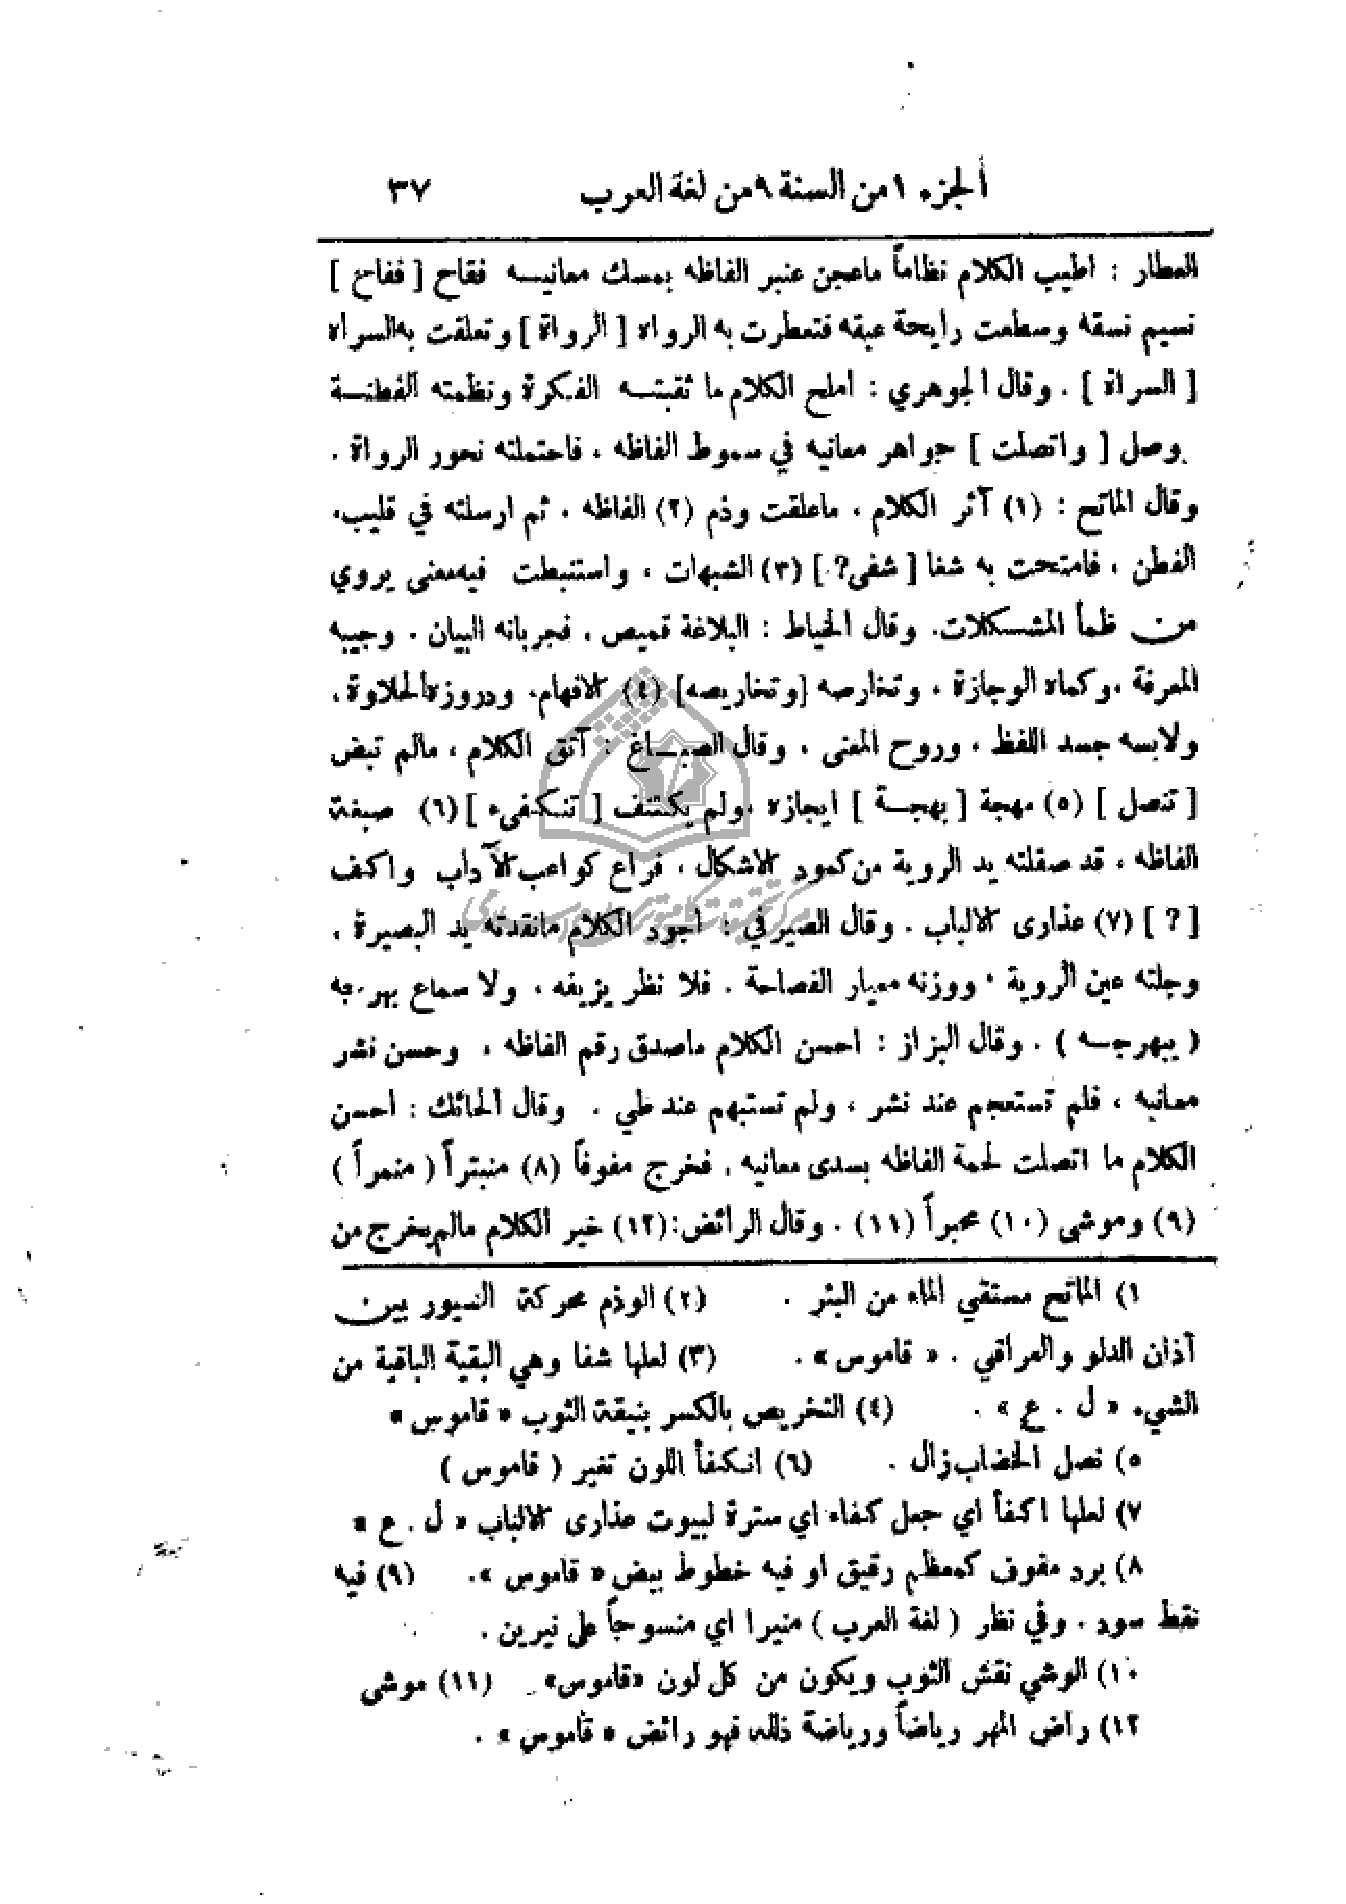 الجزء ١ من السنة ٩ من لغة العرب ٣٧
العطار : اطيب الكلام نظاماً ما عجن عنبر الفاظه بمسك معانيه ففاح [ ففاح ]
نسيم نسقه وسطعت رايحة عبقه فتعطرت به الرواه [ الرواة ] وتعلقت به السراه
[ السراة ] . وقال الجوهري : املح الكلام ما ثقبته الفكرة ونظمته الفطنة
وصل [ واتصلت ] جواهر معانيه في سموط الفاظه ، فاحتملته نحور الرواة .
وقال الماتح : (١) آثر الكلام ، ما علقت وذم (٢) الفاظه . ثم ارسلته في قليب
الفطن ، فامتحت به شفا [ شفى? ] (٣) الشبهات ، واستنبطت فيه معنى يروي
من ظمأ المشكلات. وقال الخياط : البلاغة قميص ، فجربانه البيان . وجيبه
المعرفة ، وكماه الوجازة ، وتخارصه [وتخاريصه] (٤) الافهام. ودروزه الحلاوة ،
ولابسه جسد اللفظ ، وروح المعنى ، وقال الصباغ : آنق الكلام ، مالم تبض
[ تنصل ] (٥) مهجة [ بهجة ] ايجازه ، ولم يكتنف [ تنكفىء ] (٦) صبغة
الفاظه ، قد صقلته يد الروية من كمود الاشكال ، فراع كواعب الآداب واكنف
[ ? ] (٧) عذارى الالباب . وقال الصيرفي : اجود الكلام مانقدته يد البصيرة ،
وجلته عين الروية ، ووزنه معيار الفصاحة . فلا نظر يزيفه ، ولا سماع بهرجه
( يبهرجه ) . وقال البزاز : احسن الكلام ماصدق رقم الفاظه ، وحسن نشر
معانيه ، فلم تستعجم عند نشر ، ولم تستبهم عند طي . وقال الحائك : احسن
الكلام ما اتصلت لحمة الفاظه بسدى معانيه ، فخرج مفوفاً (٨) منبتراً ( منمراً )
(٩) وموشى (١٠) محبراً (١١) . وقال الرائض: (١٢) خير الكلام مالم يخرج من
١) الماتح مستقي الماء من البئر . (٢) الوذم محركة السيور بين
آذان الدلو والعراقي . « قاموس » . (٣) لعلها شفا وهي البقية الباقية من
الشيء « ل . ع » . (٤) التخريص بالكسر بنيقة الثوب « قاموس »
٥) نصل الخضاب زال . (٦) انكفأ اللون تغير ( قاموس )
٧) لعلها اكفأ اي جعل كفاء اي سترة لبيوت عذارى الالباب « ل . ع »
٨) برد مفوف كمعظم رقيق او فيه خطوط بيض « قاموس ». (٩) فيه
نقط سود . وفي نظر ( لغة العرب ) منيرا اي منسوجاً على نيرين .
١٠) الوشي نقش الثوب ويكون من كل لون «قاموس» . (١١) موشى
١٢) راض المهر رياضاً ورياضة ذلله فهو رائض « قاموس » .